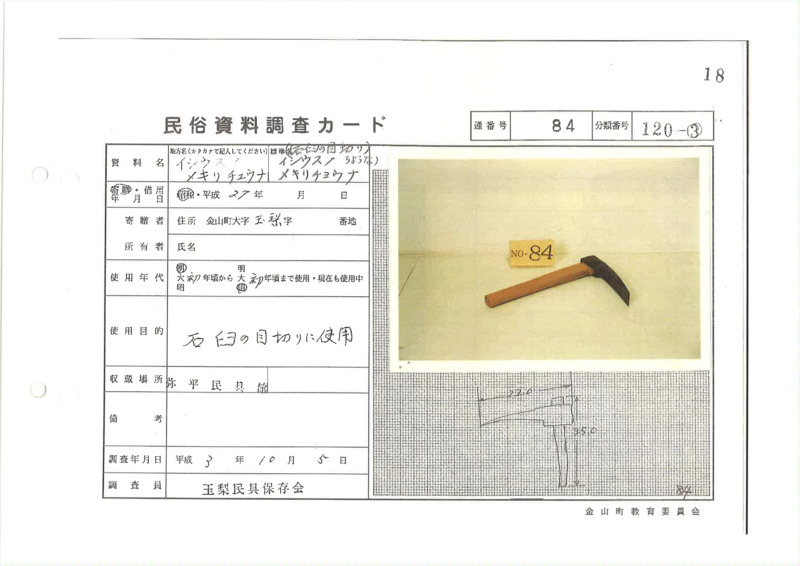 18
民俗資料調査カード
通番号 84 分類番号 120-③
資料名
地方名(カタカナで記入してください)
イシウスノ
メキリチュウナ
(石臼の目切り
イシウスノ
メキリチョウナ
寄贈・借用 年月日 昭和・平成 27年 月 日
寄贈者 住所 金山町大字玉梨字 番地
所有者 氏名
使用年代 明大昭 初年頃から 明大昭 初年頃まで使用・現在も使用中
使用目的 石臼の目切りに使用
収蔵場所 弥平民具館
備考
調査年月日 平成3年10月5日
調査員 玉梨民具保存会
NO.84
22.0
35.0
84
金山町教育委員会